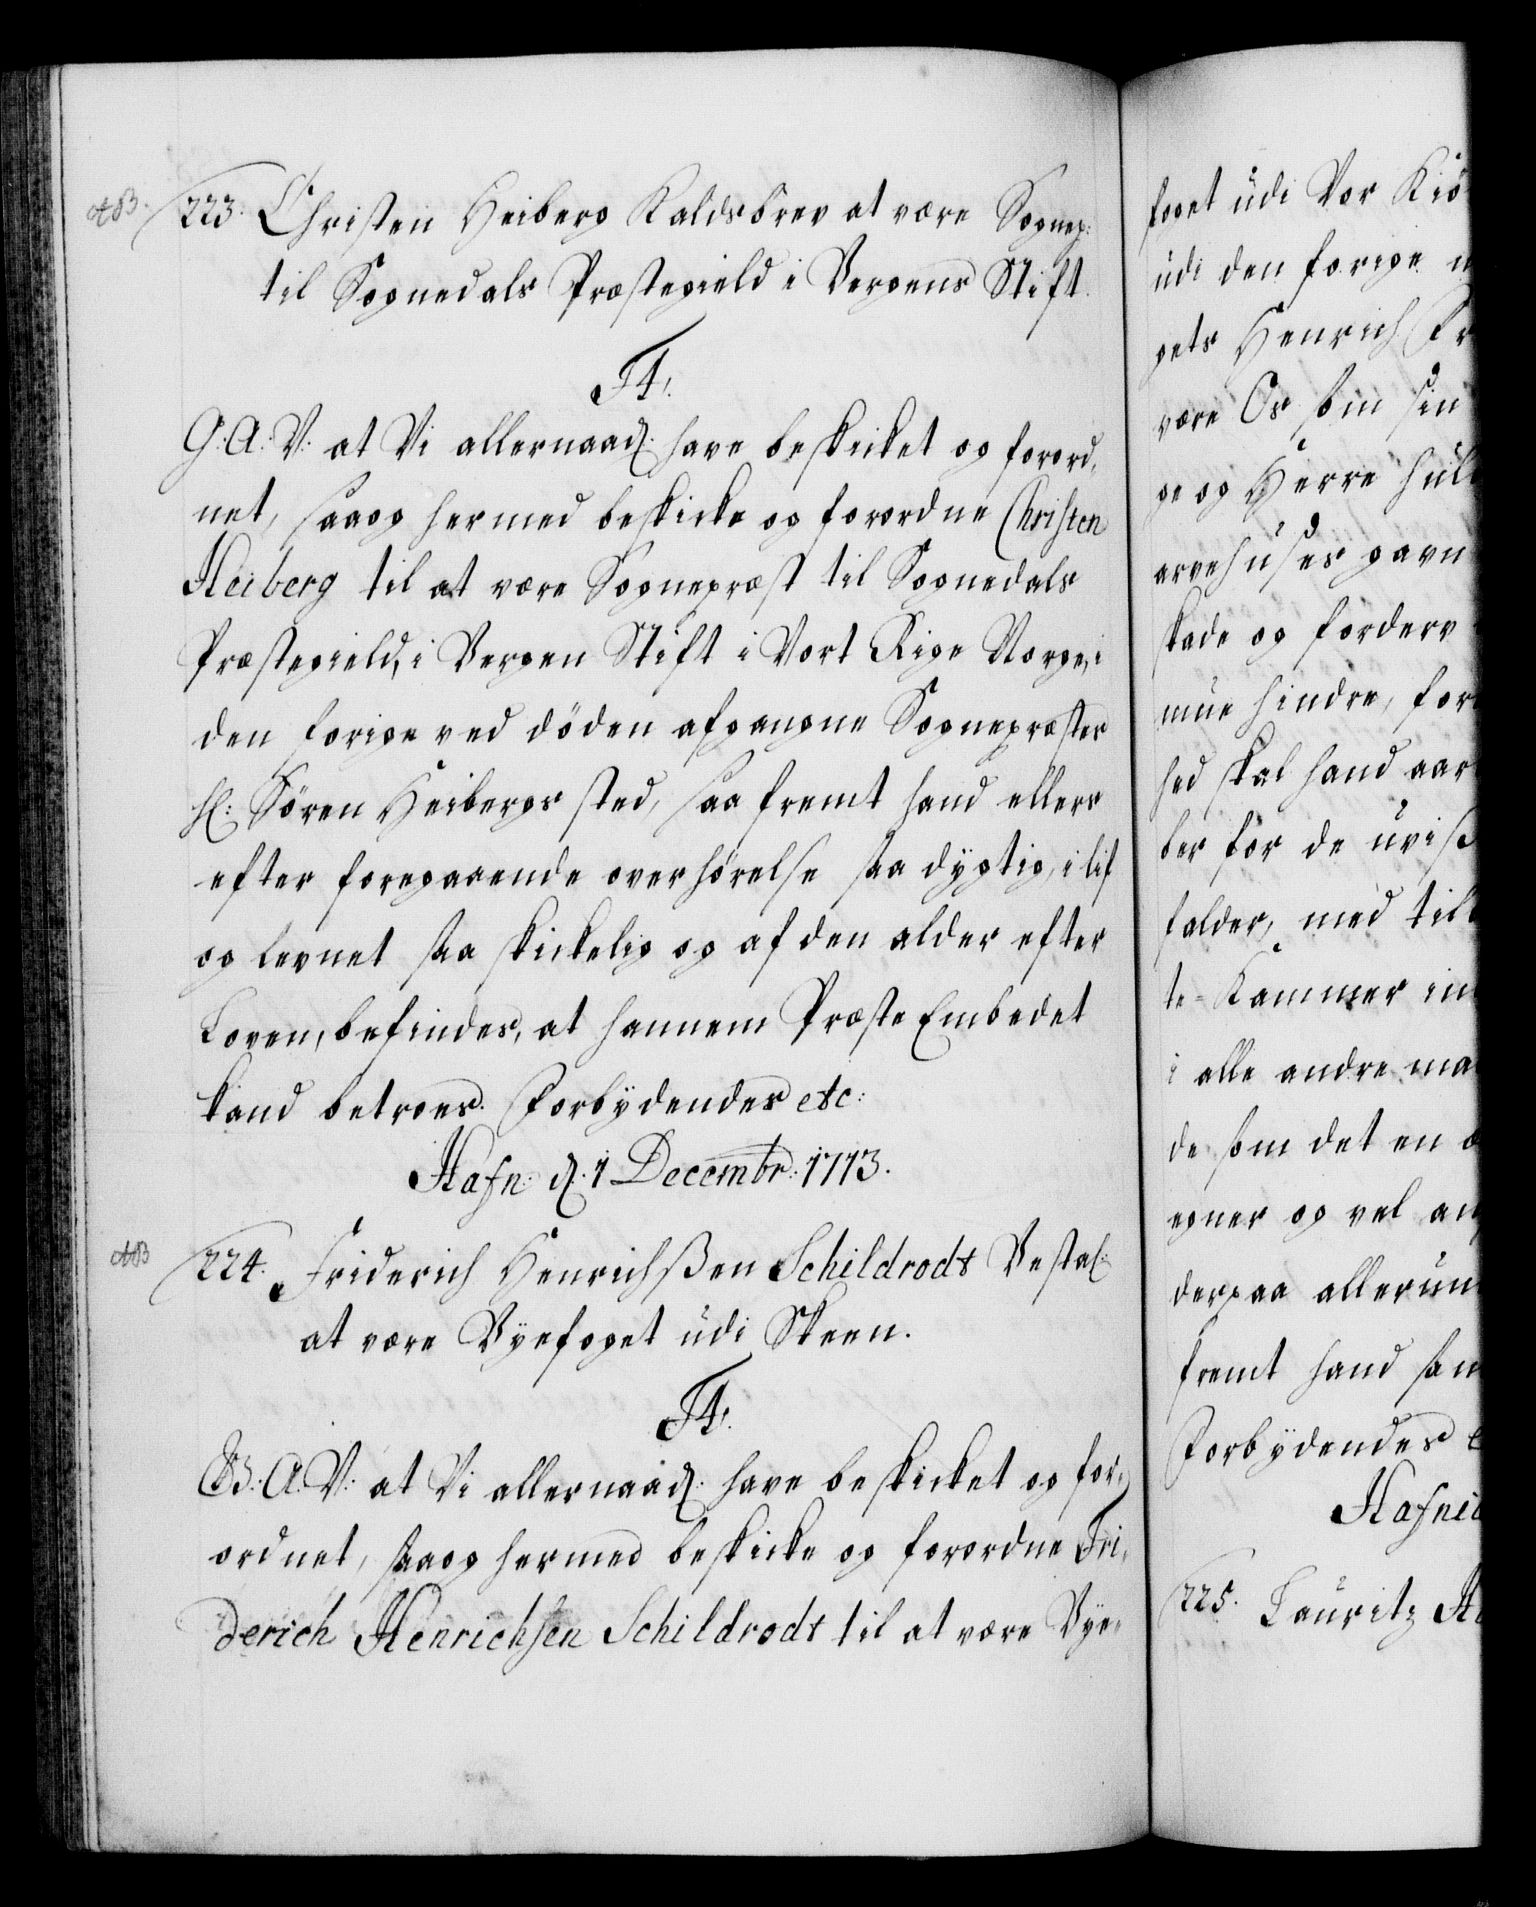 223. Christen Heiberg Kaldsbrev at være Sognep:
til Sognedals Præstegield i Bergens Stift.
F4.
G. A. V. at Vi allernaad: have beskicket og forord,
net, saaog hermed beskicke og forordne Christen
Heiberg til at være Sognepræst til Sognedals
Præstegield, i Bergen Stift i Vort Rige Norge, i
den forige ved döden afgangne Sognepræstes
Hr: Sören Heibergs sted, saafremt hand ellers
efter foregaaende overhørelse saa dygtig, i lif
og levnet saa skickelig og af den alder efter
Loven, befindes, at hannem Præste Embedet
kand betroes. Forbydendes etc:
Hafn: d. 1 Decembr: 1713.
224. Friderich Henrichßen Schildrodt Bestal:
at være Byefoget udi Skeen.
F4.
G. A. V. at Vi allernaad: have beskicket og for,
ordnet, saaog hermed beskicke og forordne Fri,
derich Henrichsen Schildrodt til at være Bye,
foget udi Vor Kiö
udi den forige
gets Henrich Fr
være Os som sin
ge og Herre huld
arvehuses gavn
skade og forderv
mue hindre, for
hed skal hand aar
ber for de uviß
falder, med til
te-Kammer in
i alle andre ma
de som det en æ
egner og vel an
derpaa allerun
fremt hand sam
Forbydendes e
Hafnia
225. Lauritz